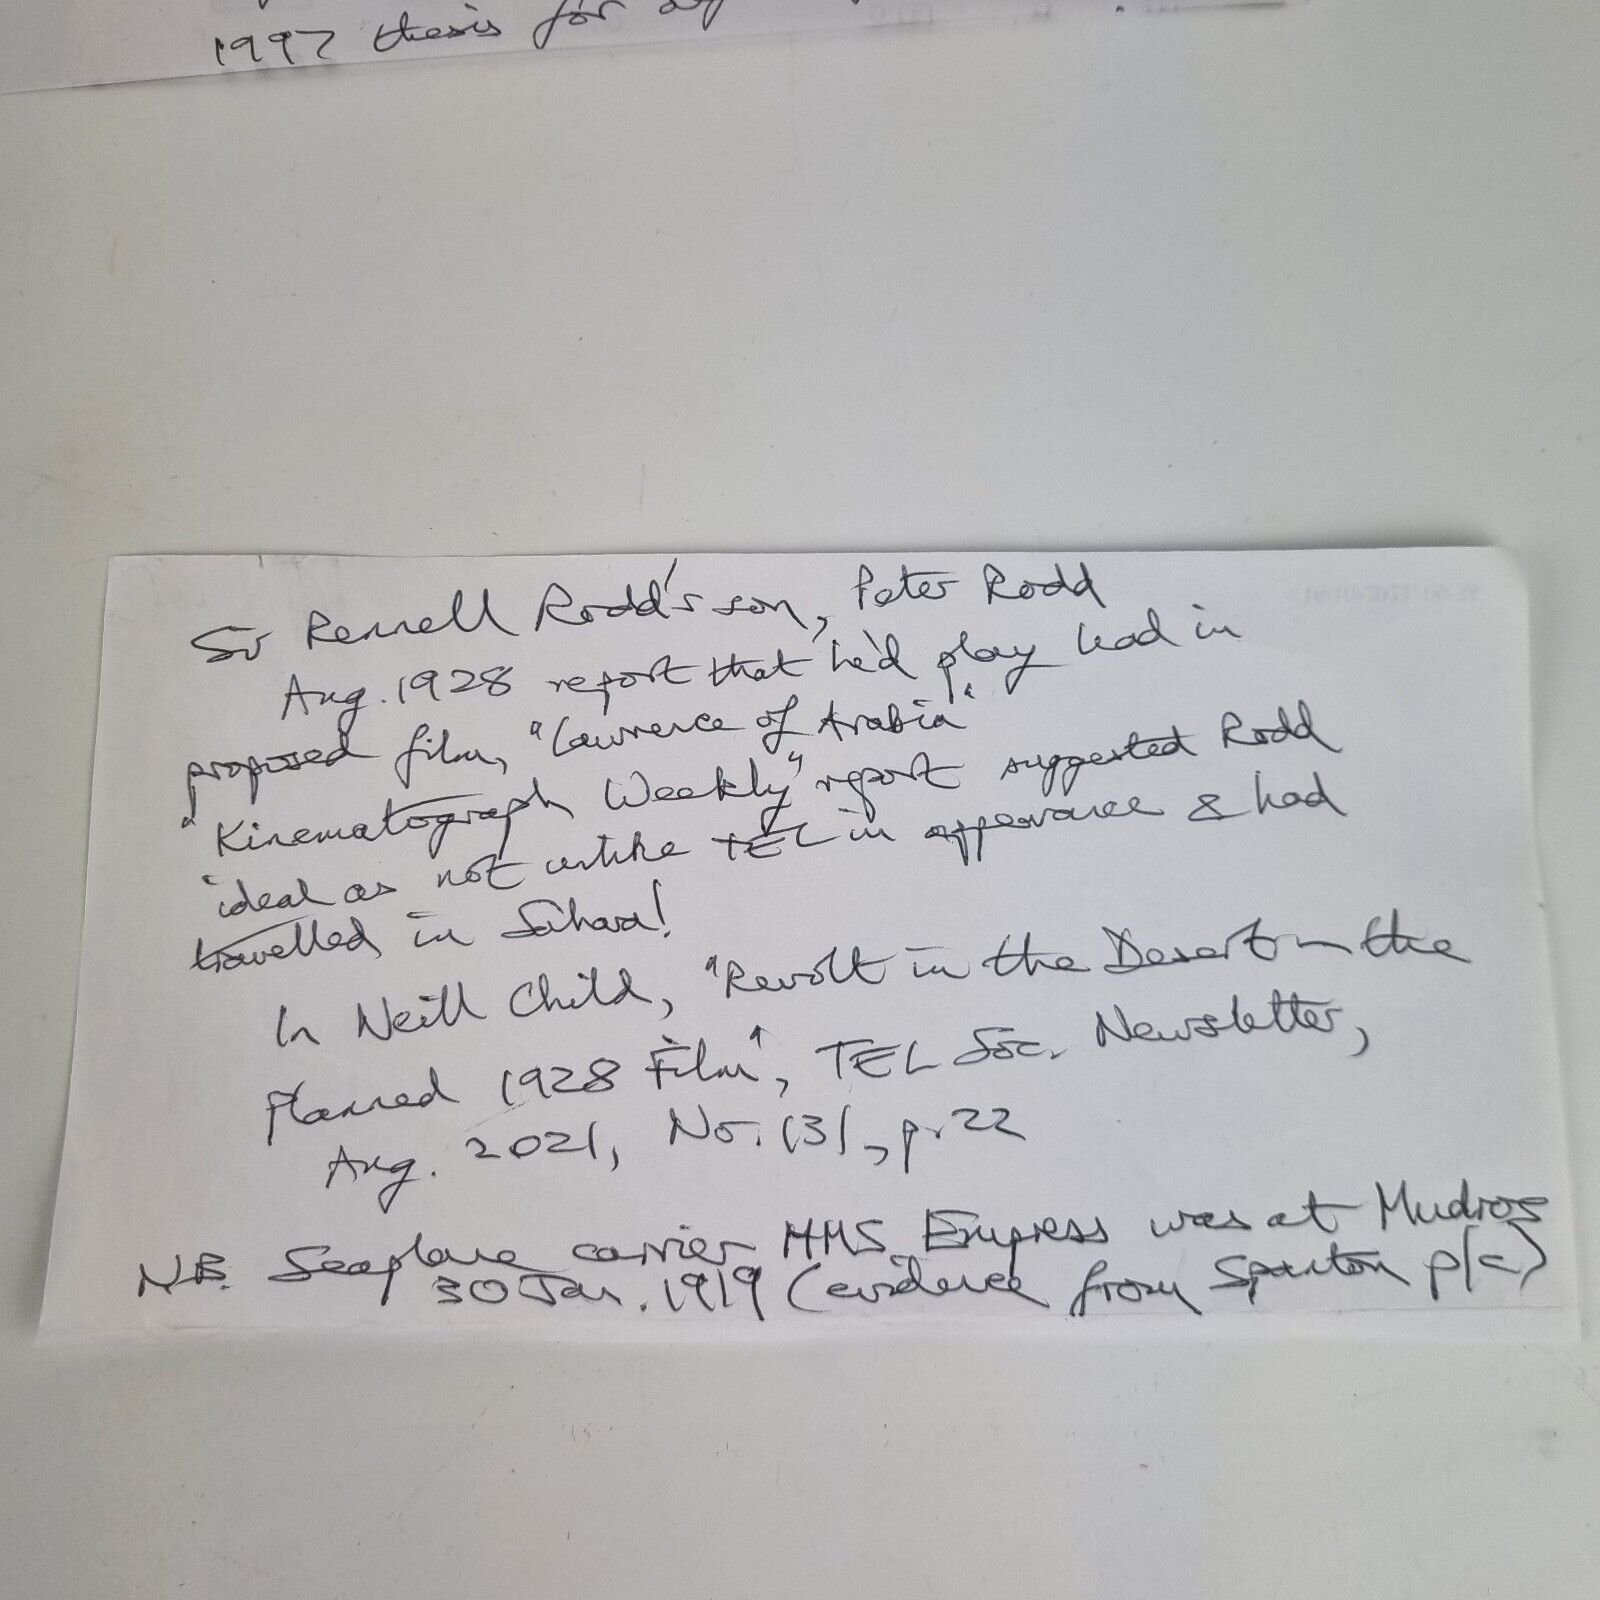 1997 thesis for
Sir Rennell Rodd's son, Peter Rodd
Aug. 1928 report that he'd play lead in
proposed film, "Lawrence of Arabia"
"Kinematograph Weekly" report suggested Rodd
ideal as not unlike TEL in appearance & had
travelled in Sahara!
In Neill Child, "Revolt in the Desert – the
Planned 1928 Film", TEL Soc. Newsletter,
Aug. 2021, No. 131, p. 22
N.B. Seaplane carrier HMS Empress was at Mudros
30 Jan. 1919 (evidence from Spenton p/c)